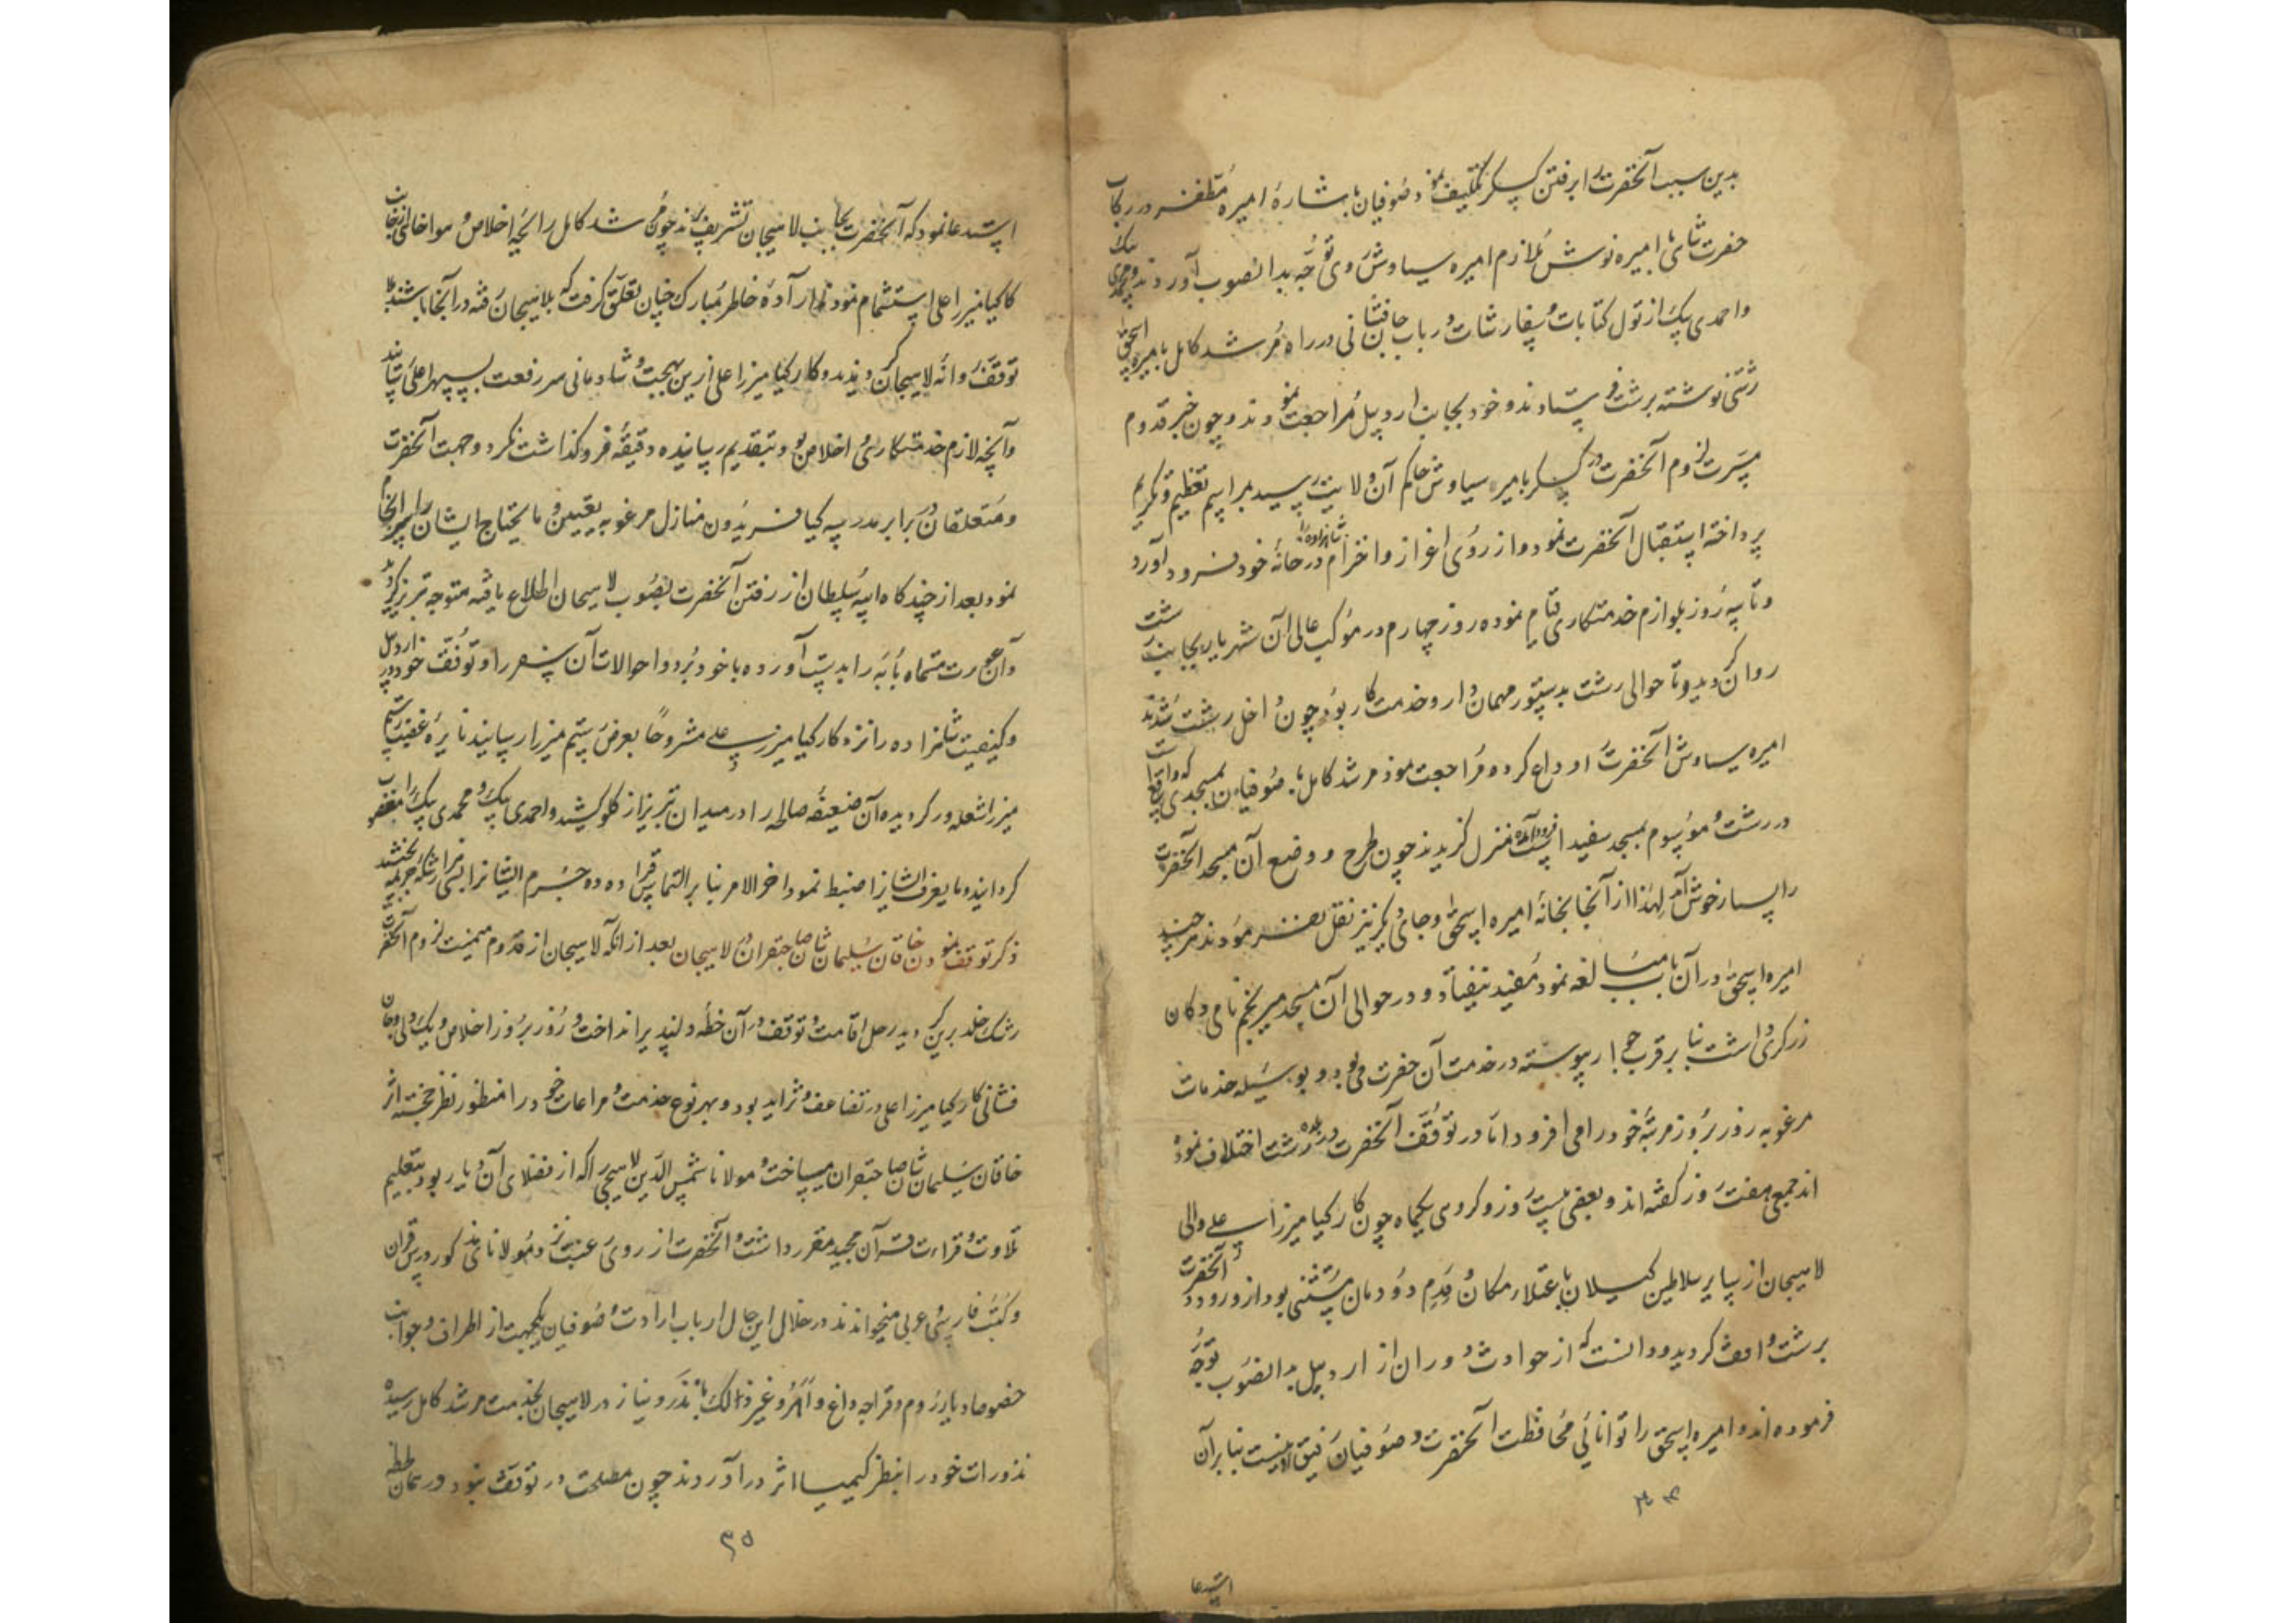 بدین سبب آنحضرت را برفتن کسکر تکلیف نمود و صوفیان با شارهٔ امیره مظفر در رکاب
حضرت شاهی با امیره نوش ملازم امیره سیاوش روی توجه بدانصوب آوردند و محمدی بیک
واحمدی بیک از تول کتابات و سفارشات در باب جانفشانی در راه مرشد کامل بامیره اسحق
رشتی نوشته برشت فرستادند و خود بجانب اردبیل مراجعت نمودند و چون خبر قدوم
مسرت لزوم آنحضرت در کسکر بامیره سیاوش حاکم آن ولایت رسید بمراسم تعظیم و تکریم
پرداخته استقبال آنحضرت نمود و از روی اعزاز و احترام شاهزاده را در خانهٔ خود فرود آورد
و تا سه روز بلوازم خدمتکاری قیام نموده روز چهارم در موکب عالی آن شهریار بجانب رشت
روان گردید و تا حوالی رشت بدستور مهمان دار و خدمت کار بود و چون داخل رشت شدند
امیره سیاوش آنحضرت را وداع کرد و مراجعت نمود مرشد کامل با صوفیان بمسجدی که واقع است
در رشت و موسوم بمسجد سفید است فرود آمده منزل گزیدند چون طرح و وضع آن مسجد آنحضرت
را بسیار خوش آمد لهذا از آنجا بخانهٔ امیره اسحق و جای دیگر نیز نقل نفرمودند هر چند
امیره اسحق در آن باب مبالغه نمود مفید نیفتاد و در حوالی آن مسجد میر نجم نامی دکان
زرگری داشت بنا بر قرب جوار پیوسته در خدمت آن حضرت می بود و بوسیله خدمات
مرغوبه روز بروز مرتبهٔ خود را می افزود اما در توقف آنحضرت در بلده رشت اختلاف نموده
اند جمعی هفت روز گفته اند و بعضی بیست روز و گروهی یکماه چون کارکیا میرزا علی والی
لاهیجان از سایر سلاطین گیلان باعتلاء مکان و قدم دودمان مستثنی بود از ورود آنحضرت
برشت واقف گردید و دانست که از حوادث دوران از اردبیل بدانصوب توجه
فرموده اند و امیره اسحق را توانائی محافظت آنحضرت و صوفیان رفیق نیست بنا برآن
۳۴
استدعا
استدعا نمود که آنحضرت بجانب لاهیجان تشریف برند چون مرشد کامل رایحهٔ اخلاص و هواخواهی از جانب
کارکیا میرزا علی استشمام نمودند اراده خاطر مبارک چنان تعلق گرفت که بلاهیجان رفته در آنجا باشند بلا
توقف روانه لاهیجان گردیدند و کارکیا میرزا علی ازین بهجت و شادمانی سر رفعت بسپهر اعلی رسانید
و آنچه لازم خدمتکاری و اخلاص بود بتقدیم رسانیده دقیقهٔ فروگذاشت نکرد و جهت آنحضرت
و متعلقان در برابر مدرسه کیا فریدون منازل مرغوبه تعیین و مایحتاج ایشان را سرانجام
نمود بعد از چند گاه ایبه سلطان از رفتن آنحضرت بصوب لاهیجان اطلاع یافته متوجه تبریز گردید
و آن عورت مسماه بأبه را بدست آورده با خود برد و احوالات آن پسر را و توقف خود در اردبیل
و کیفیت شاهزاده را نزد کارکیا میرزا علی مشروحا بعرض رستم میرزا رسانید نایره غضب رستم
میرزا شعله ور گردیده آن ضعیفه صالحه را در میدان تبریز از گلو کشید و احمدی بیک و محمدی بیک را
گردانیده مایعرف ایشانرا ضبط نمود آخر الامر بنا بر التماس
ذکر توقف نمودن خاقان سلیمان شان صاحبقران در لاهیجان بعد از آنکه لاهیجان از قدوم میمنت لزوم آنحضرت
رشک خلد برین گردید رحل اقامت و توقف در آن خطه دلپذیر انداخت و روز بروز اخلاص و یک دلی و جان
فشانی کارکیا میرزا علی در تضاعف و تزاید بود و بهر نوع خدمت و مراعات خود را منظور نظر خجسته اثر
خاقان سلیمان شان صاحبقران میساخت و مولانا شمس الدین لاهیجی را که از فضلای آن دیار بود بتعلیم
تلاوت و قراءت قرآن مجید مقرر داشت و آنحضرت از روی رغبت نزد مولانا مذکور درس قرآن
و کتب فارسی و عربی میخواندند در خلال این حال ارباب ارادت و صوفیان یکجهت از اطراف و جوانب
خصوصا دیار روم و قراجه داغ و اهر و غیر ذالک با نذر و نیاز در لاهیجان بخدمت مرشد کامل رسیده
نذورات خود را بنظر کیمیا اثر در آوردند چون مصلحت در توقف نبود در همان لحظه
۳۵